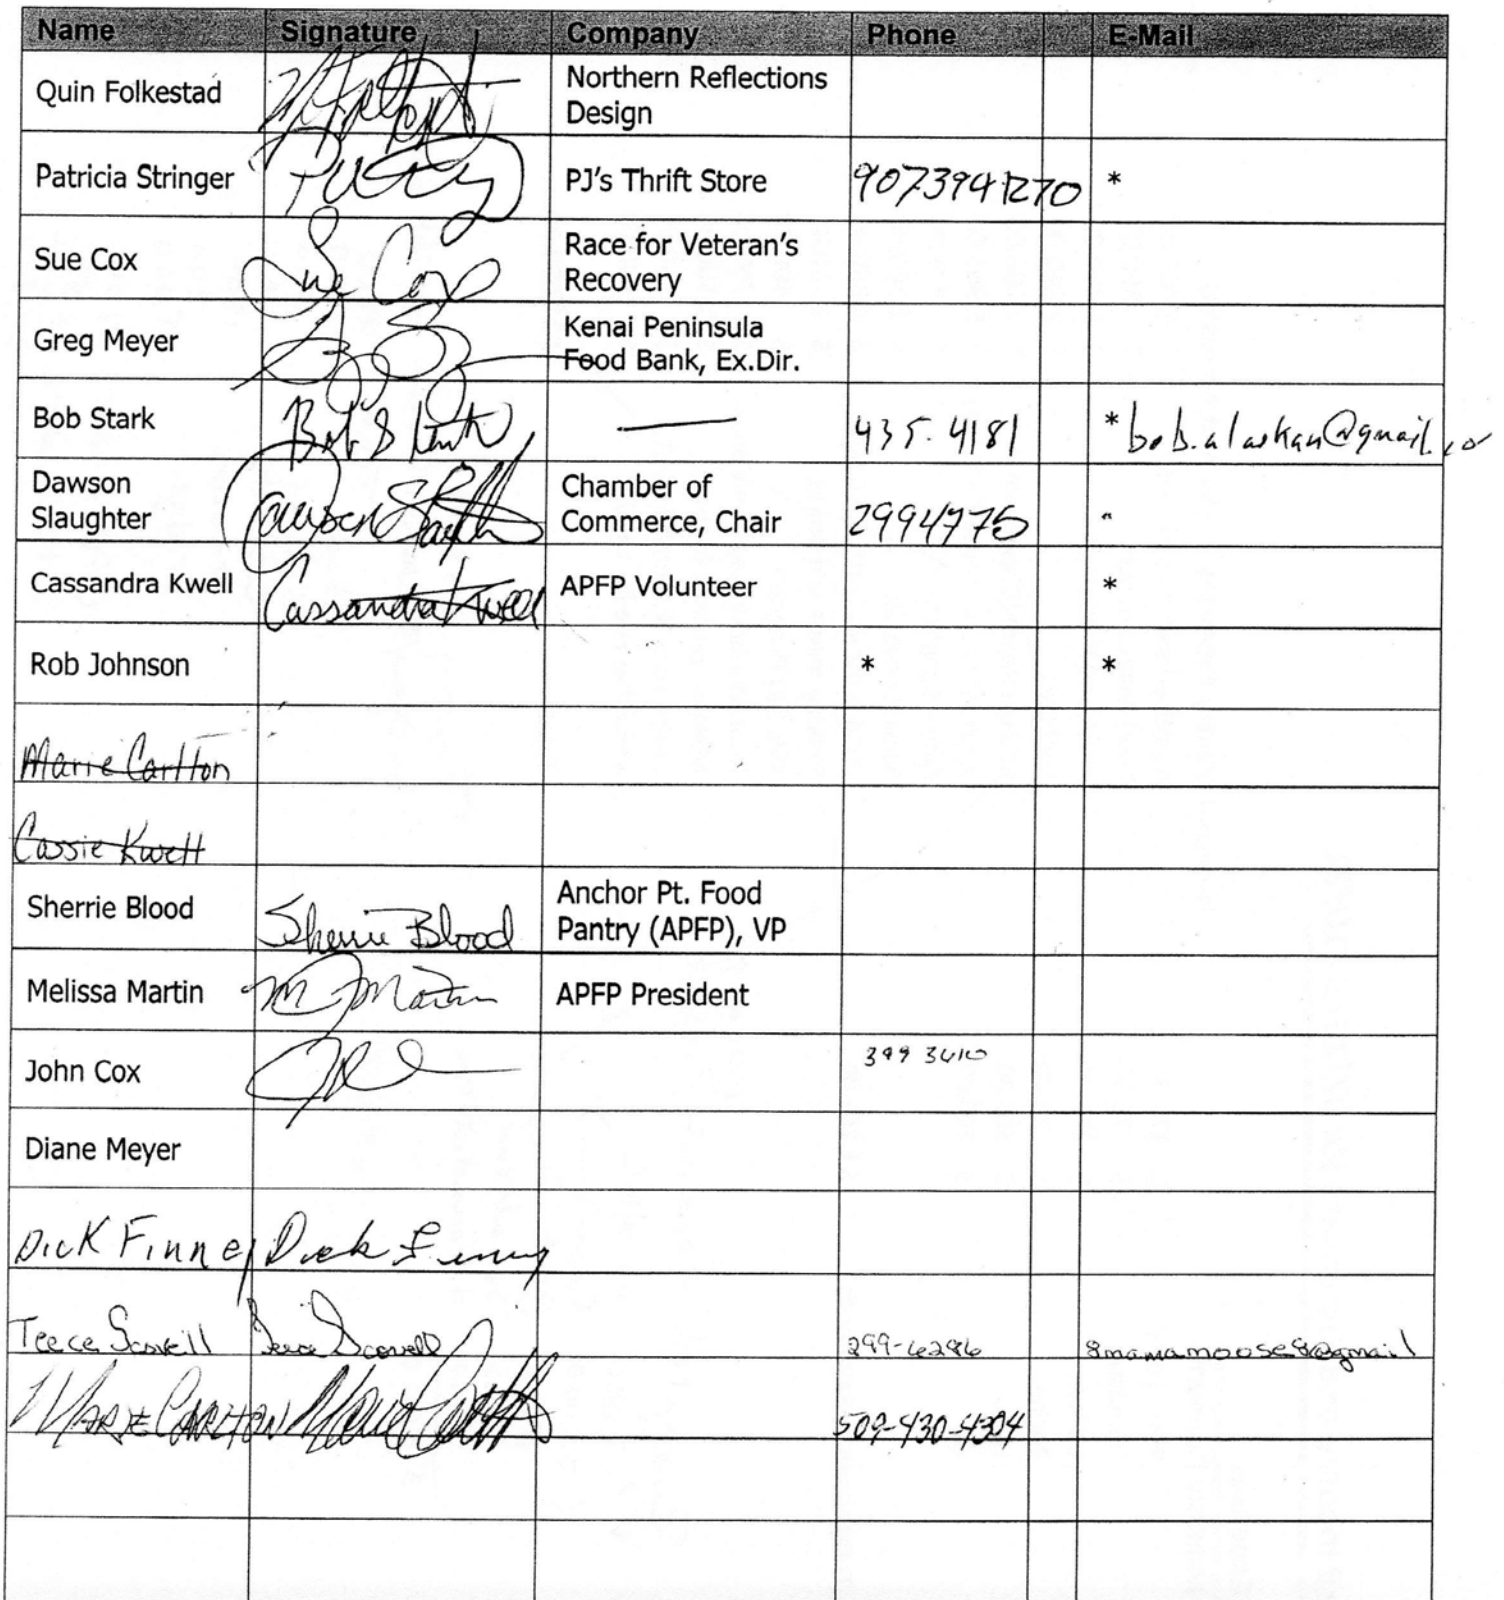 Name Signature Company Phone E-Mail
Quin Folkestad Northern Reflections
Design
Patricia Stringer Patty PJ's Thrift Store 9073941270 *
Sue Cox Sue Cox Race for Veteran's
Recovery
Greg Meyer Kenai Peninsula
Food Bank, Ex.Dir.
Bob Stark — 435.4181 * bob.alaskan@gmail.co
Dawson
Slaughter Dawson Slaughter Chamber of
Commerce, Chair 2994775
Cassandra Kwell Cassandra Kwell APFP Volunteer *
Rob Johnson * *
Marie Carlton
Cassie Kwell
Sherrie Blood Sherrie Blood Anchor Pt. Food
Pantry (APFP), VP
Melissa Martin M Martin APFP President
John Cox 399
Diane Meyer
Dick Finney Dick Finney
Teece 299-6286 8mamamoose8@gmail
Marie Carlton Marie Carlton 509-430-4304